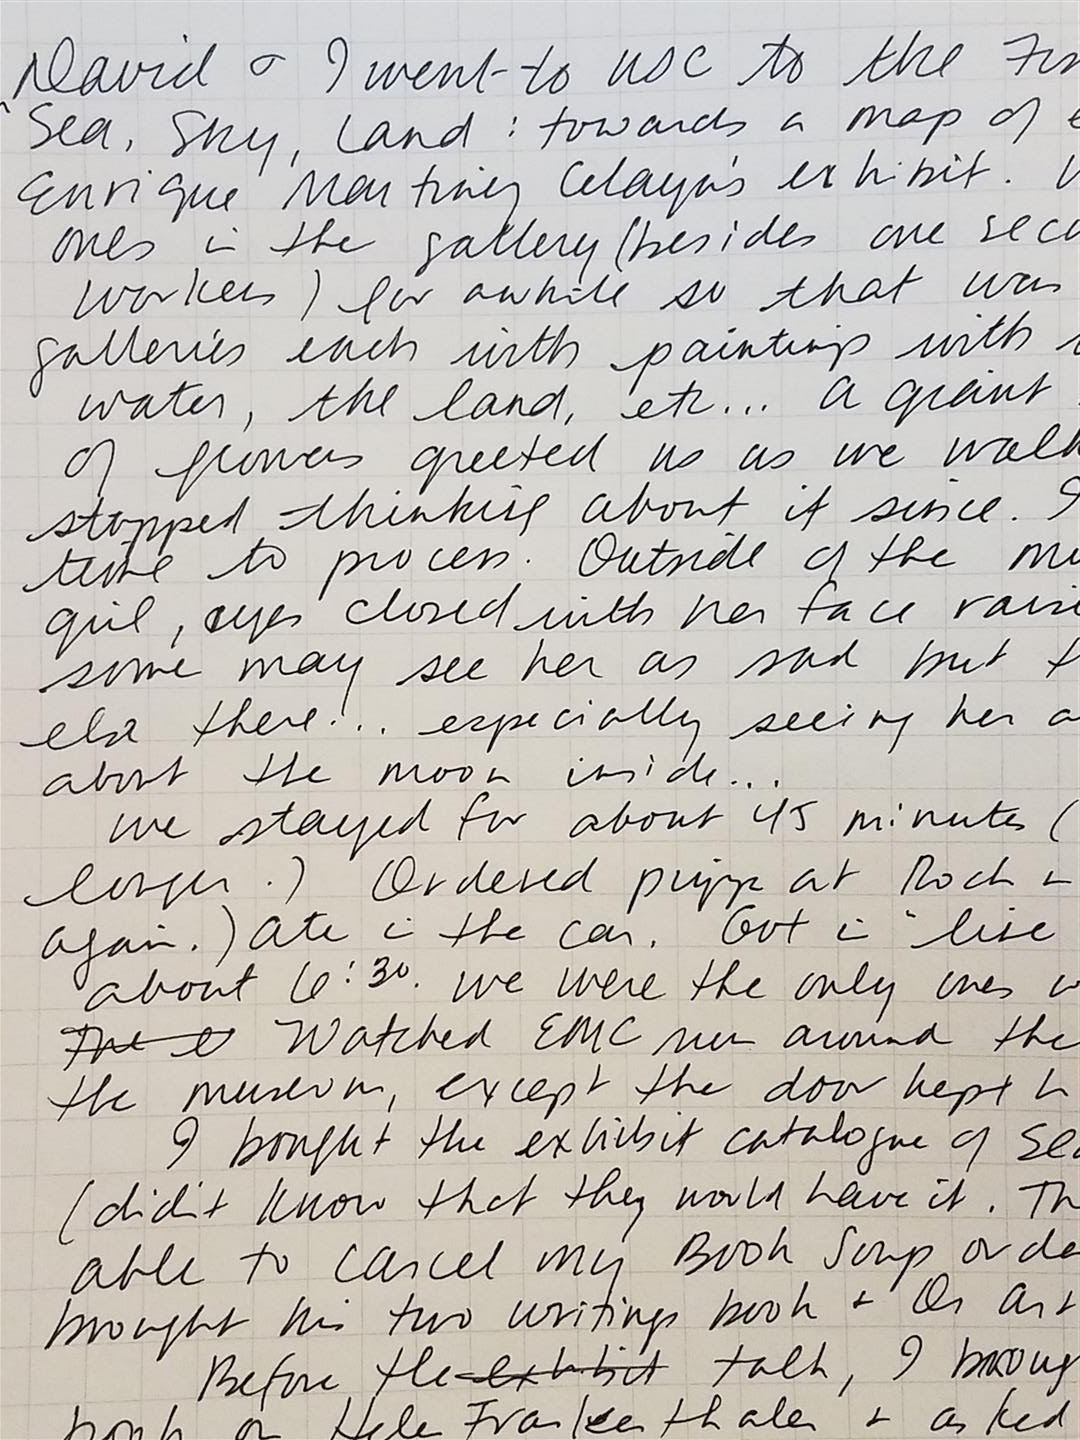 David & I went to USC to the
Sea, Sky, Land: towards a map of
Enrique Martinez Celaya's exhibit.
ones in the gallery (besides one secu
workers) for awhile so that was
galleries each with paintings with
water, the land, etc... A giant
of flowers greeted us as we walk
stopped thinking about it since. I
time to process. Outside of the mu
girl, eyes closed with her face raise
some may see her as sad but t
else there... especially seeing her a
about the moon inside...
we stayed for about 45 minutes (
longer.) Ordered pizza at Rock
again.) Ate in the car. Got in line
about 6:30. we were the only ones w
Watched EMC run around the
the museum, except the door kept
I bought the exhibit catalogue of Sea
(didn't know that they would have it. Th
able to cancel my Book Soup orde
brought his two writings book + On Art
Before the exhibit talk, I broug
book on Helen Frankenthaler + asked